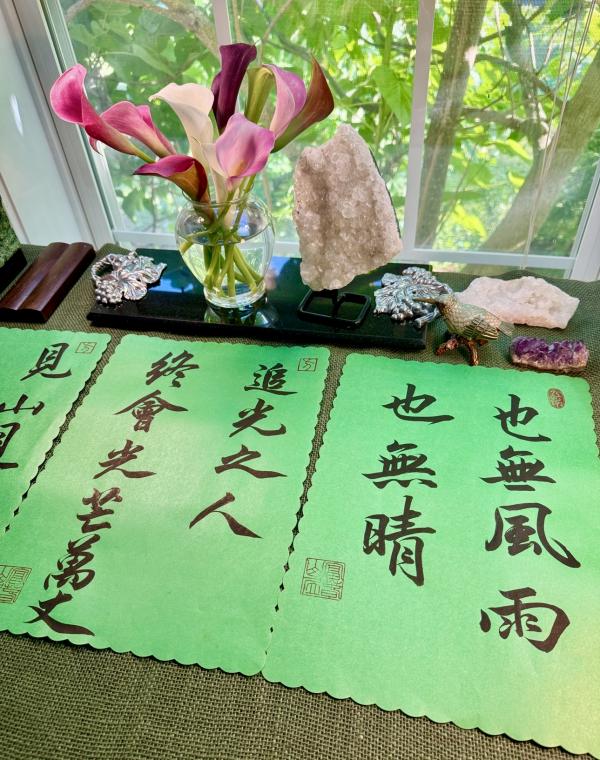 也無風雨
也無晴
追光之人
終會光芒萬丈
見山見